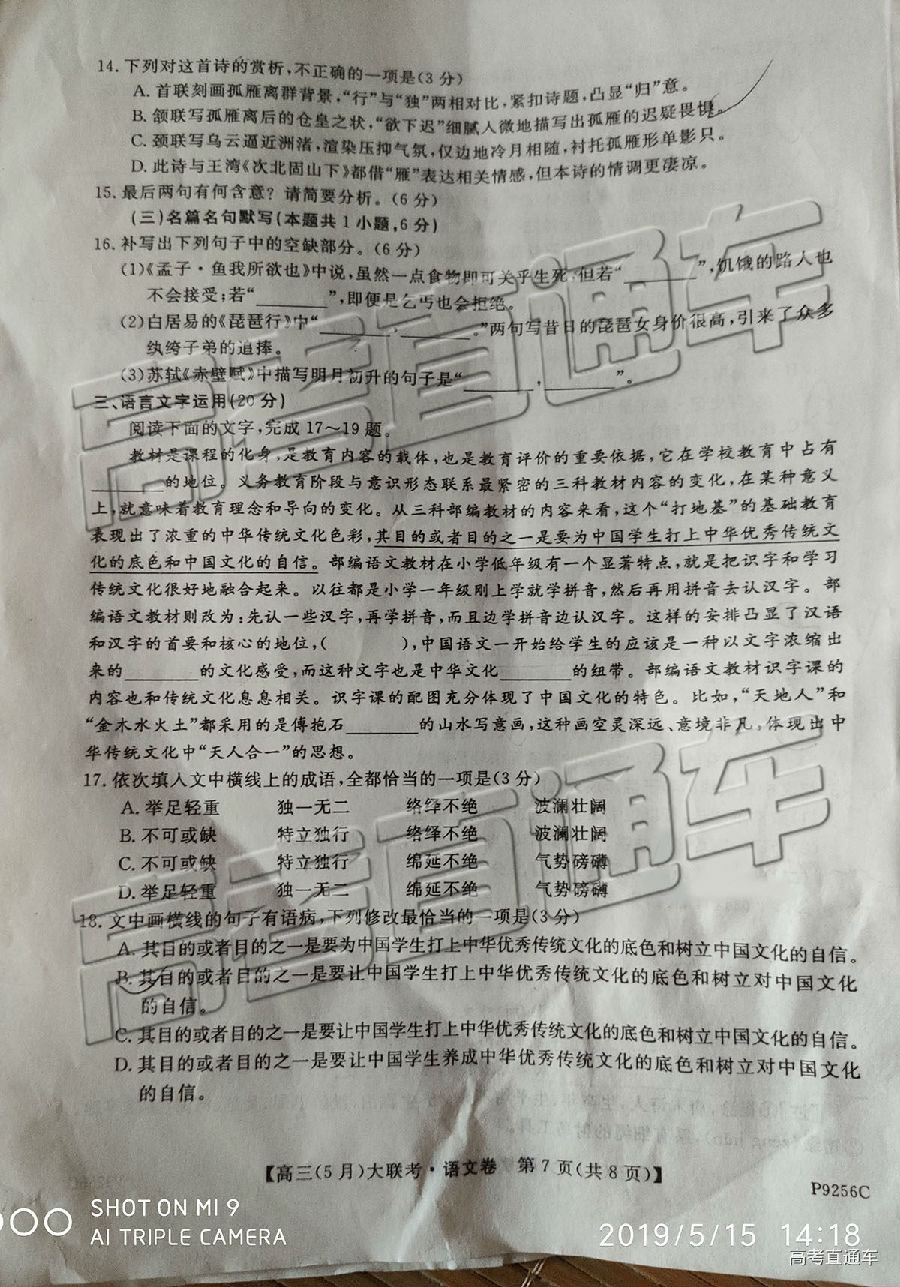 14. 下列对这首诗的赏析,不正确的一项是(3分)
A. 首联刻画孤雁离群背景,“行”与“独”两相对比,紧扣诗题,凸显“归”意。
B. 颔联写孤雁离后的仓皇之状,“欲下迟”细腻人微地描写出孤雁的迟疑畏惧。
C. 颈联写乌云逼近洲渚,渲染压抑气氛,仅边地冷月相随,衬托孤雁形单影只。
D. 此诗与王湾《次北固山下》都借“雁”表达相关情感,但本诗的情调更凄凉。
15. 最后两句有何含意? 请简要分析。(6分)
(三)名篇名句默写(本题共1小题,6分)
16. 补写出下列句子中的空缺部分。(6分)
(1)《孟子·鱼我所欲也》中说,虽然一点食物即可关乎生死,但若“________”,饥饿的路人也
不会接受;若“________”,即便是乞丐也会拒绝。
(2)白居易的《琵琶行》中“________,________。”两句写昔日的琵琶女身价很高,引来了众多
纨绔子弟的追捧。
(3)苏轼《赤壁赋》中描写明月初升的句子是“________,________”。
三、语言文字运用(20分)
阅读下面的文字,完成17~19题。
教材是课程的化身,是教育内容的载体,也是教育评价的重要依据,它在学校教育中占有
________的地位。义务教育阶段与意识形态联系最紧密的三科教材内容的变化,在某种意义
上,就意味着教育理念和导向的变化。从三科部编教材的内容来看,这个“打地基”的基础教育
表现出了浓重的中华传统文化色彩,其目的或者目的之一是要为中国学生打上中华优秀传统文
化的底色和中国文化的自信。部编语文教材在小学低年级有一个显著特点,就是把识字和学习
传统文化很好地融合起来。以往都是小学一年级刚上学就学拼音,然后再用拼音去认汉字。部
编语文教材则改为:先认一些汉字,再学拼音,而且边学拼音边认汉字。这样的安排凸显了汉语
和汉字的首要和核心的地位,( ),中国语文一开始给学生的应该是一种以文字浓缩出
来的________的文化感受,而这种文字也是中华文化________的纽带。部编语文教材识字课的
内容也和传统文化息息相关。识字课的配图充分体现了中国文化的特色。比如,“天地人”和
“金木水火土”都采用的是傅抱石________的山水写意画,这种画空灵深远、意境非凡,体现出中
华传统文化中“天人合一”的思想。
17. 依次填人文中横线上的成语,全都恰当的一项是(3分)
A. 举足轻重 独一无二 络绎不绝 波澜壮阔
B. 不可或缺 特立独行 络绎不绝 波澜壮阔
C. 不可或缺 特立独行 绵延不绝 气势磅礴
D. 举足轻重 独一无二 绵延不绝 气势磅礴
18. 文中画横线的句子有语病,下列修改最恰当的一项是(3分)
A. 其目的或者目的之一是要为中国学生打上中华优秀传统文化的底色和树立中国文化的自信。
B. 其目的或者目的之一是要让中国学生打上中华优秀传统文化的底色和树立对中国文化
的自信。
C. 其目的或者目的之一是要让中国学生打上中华优秀传统文化的底色和树立中国文化的自信。
D. 其目的或者目的之一是要让中国学生养成中华优秀传统文化的底色和树立对中国文化
的自信。
【高三(5月)大联考·语文卷 第7页(共8页)】
P9256C
高考直通车
高考直通车
SHOT ON MI 9
AI TRIPLE CAMERA
2019/5/15 14:18
高考直通车